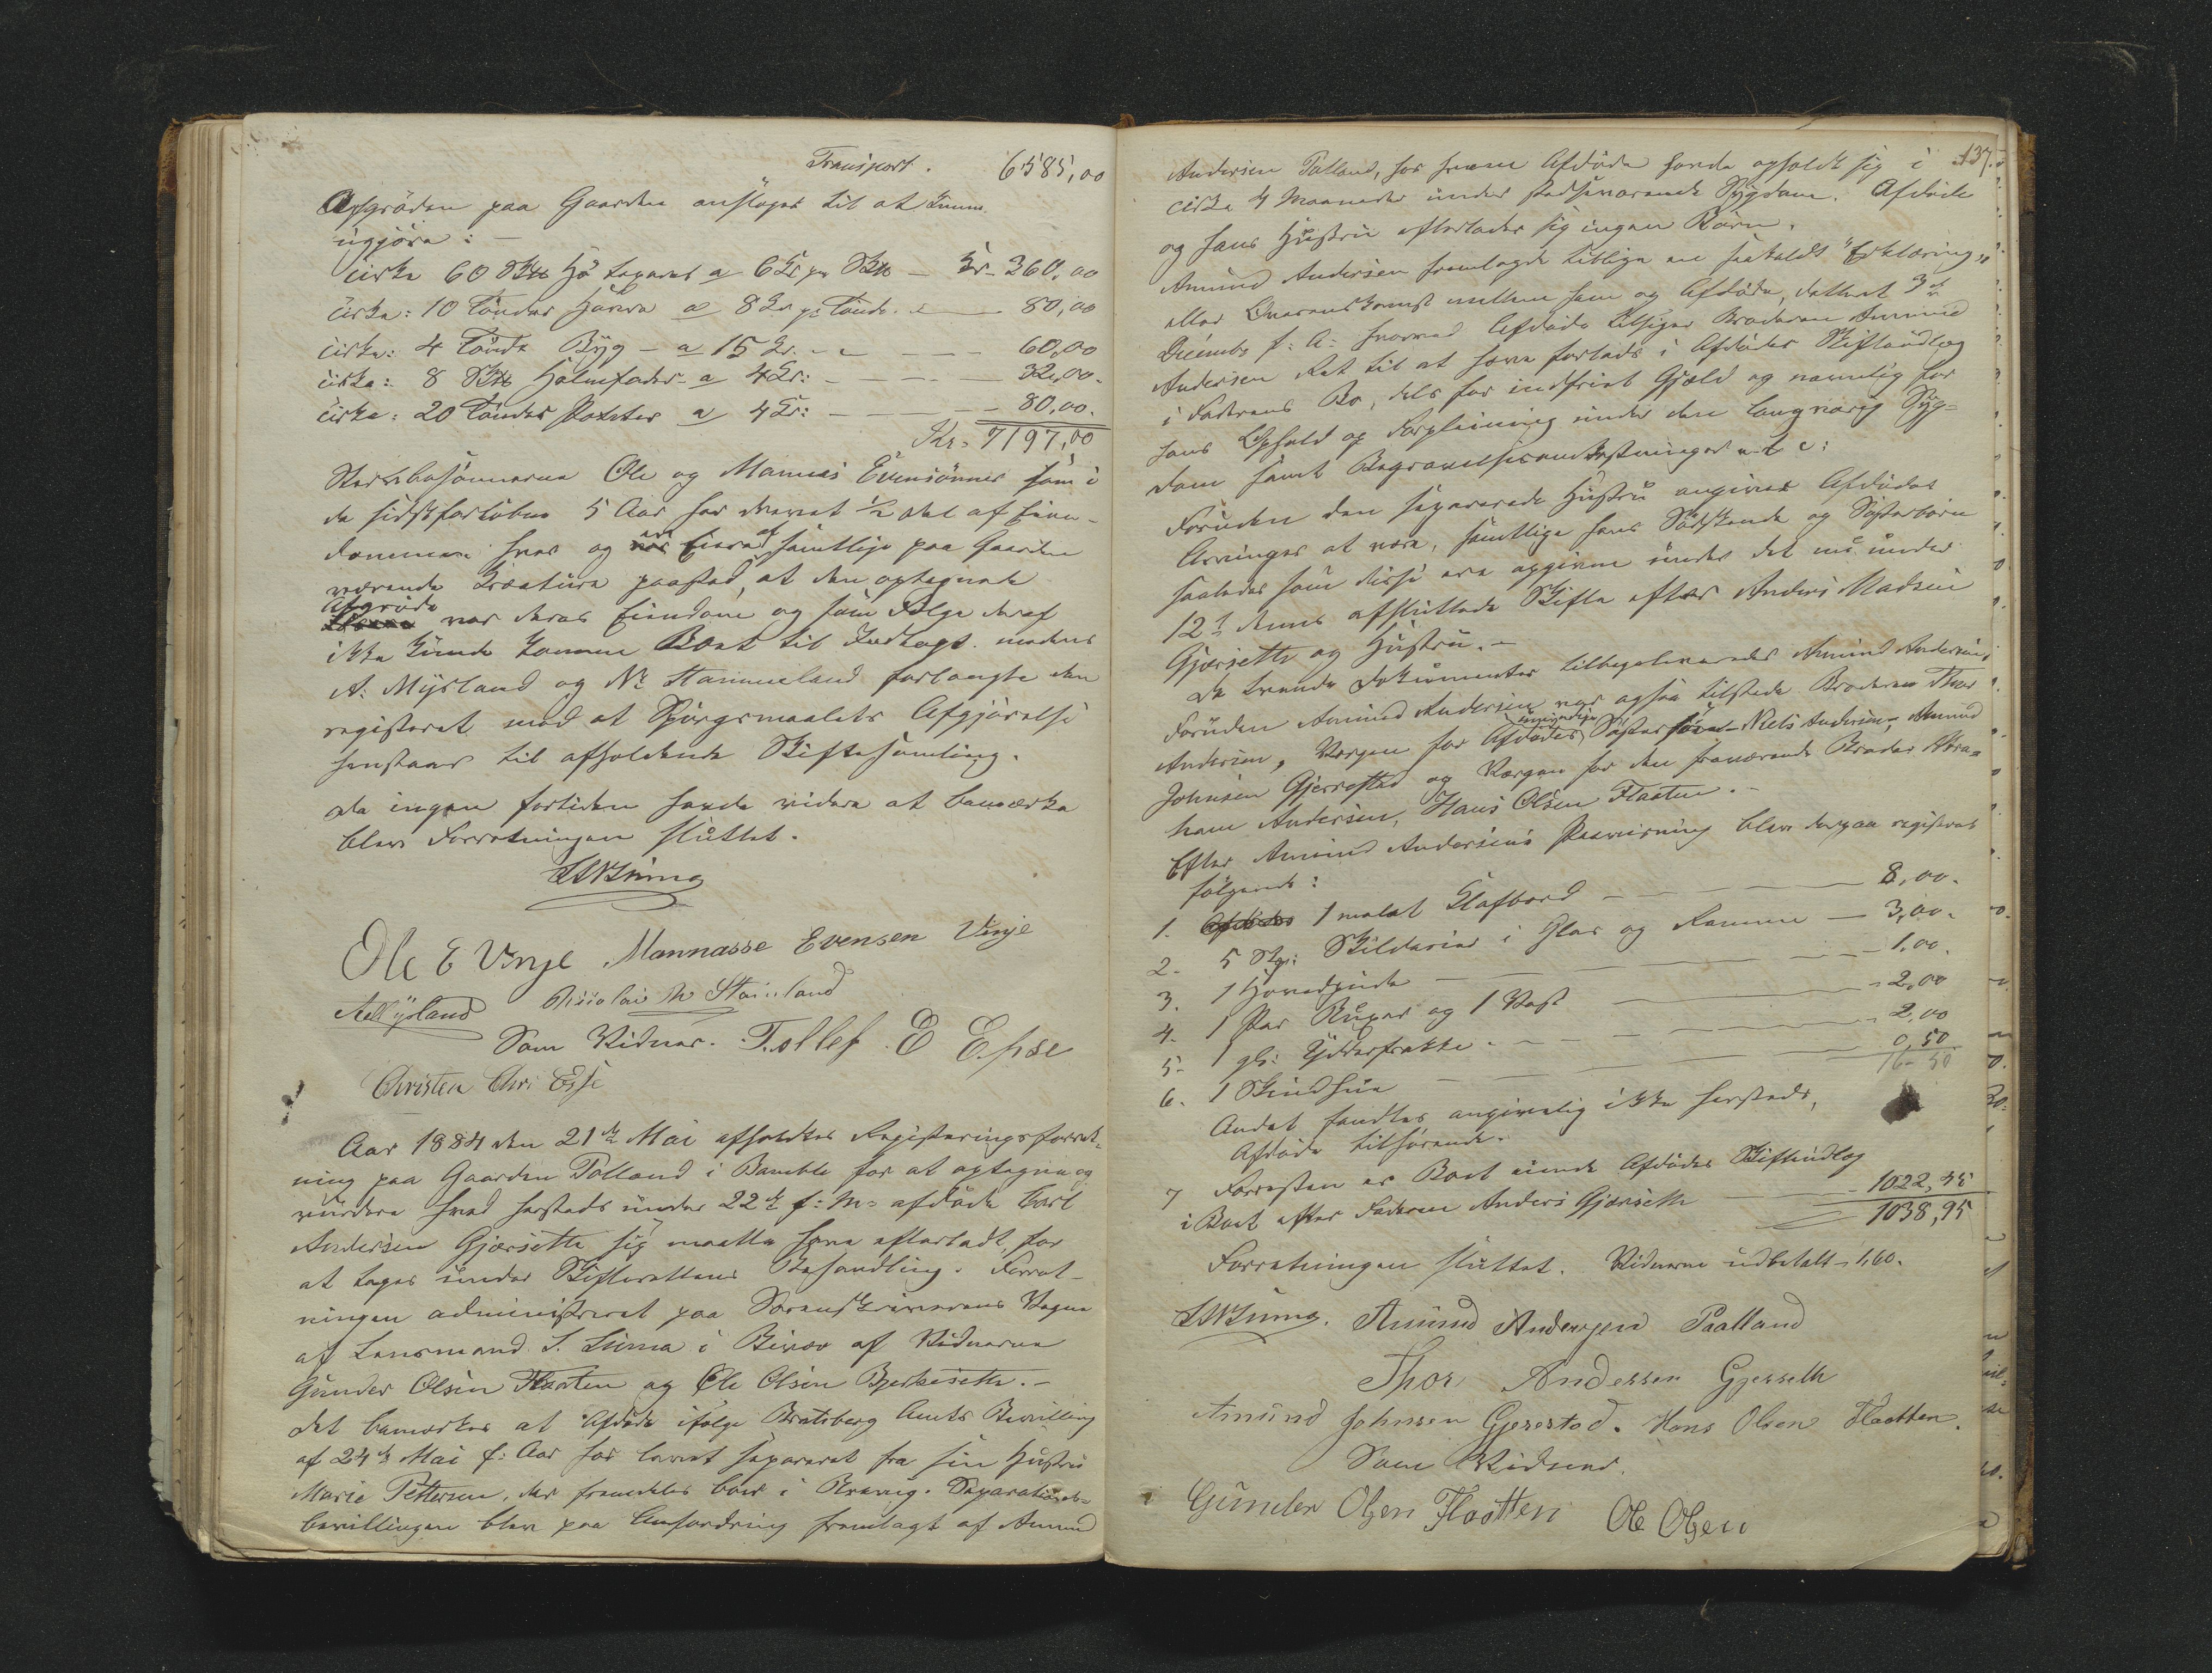 Transport. 6585,00
Afgröden paa Gaarden ansloges til at kunne
ugjöre: —
cirka 60 Skt Hö taxeret a 6 Kr pr Skt — Kr. 360,00
cirka: 10 Tönder Havre a 8 Kr pr Tönde — 80,00
cirka: 4 Tönde Byg — a 15 Kr. — 60,00
cirka: 8 Skt Halmfoder a 4 Kr: — 32,00.
cirka: 20 Tönder Poteter a 4 Kr: — 80,00.
Kr. 7197,00
Sterbosönnerne Ole og Mannas Evensönner som i
de sidstforlöbne 5 Aar har drevet 1/2 Del af Eien-
dommen hver og er Eiere af samtlige paa Gaarden
værende Kreature paastod, at den optegnede
Afgröde var deres Eiendom og som Fölge deraf
ikke kunde komme Boet til Indtægt. medens
A. Myrland og N. Stanneland forlangte den
registeret mod at Spörgsmaalets Afgjörelse
henstaar til afholdende Skiftesamling.
Da ingen fortiden havde videre at bemærke
blev Forretningen sluttet.
Ole E Vinje Mannasse Evensen Vinje
AMyrland Nicolai
Som Vidner. Tollef E Espe
Christen Chri Espe
Aar 1884 den 21de Mai afholdtes Registeringsforret-
ning paa Gaarden Palland i Bamble for at optegne og
vurdere hvad herstede under 22de f: M: afdöde Carl
Andersen Gjærseth sig maatte have efterladt, for
at tages under Skifterettens Behandling. Forret-
ningen administreret paa Sorenskriverens Vegne
af Lensmand S. i Bivær af Vidnerne
Gunder Olsen Flaaten og Ole Olsen Bjerkeseth. —
Det bemærkes at Afdöde ifölge Bratsberg Amts Bevilling
af 24de Mai f: Aar har levet separeret fra sin Hustru
Marie Pettersen, der fremdeles bor i Brevig. Separations-
bevillingen blev paa Anfordring fremlagt af Amund
137.
Andersen Palland, hos hvem Afdöde havde opholdt sig i
cirka 4 Maaneder under stedsevarende Sygdom. Afdöde
og hans Hustru efterlader sig ingen Börn.
Amund Andersen fremlagde tillige en saakaldt "Erklæring"
eller Overenskomst mellem ham og Afdöde, dateret 3de
Decembr f: A: hvorved Afdöde tilsiger Broderen Amund
Andersen Ret til at have forlods i Afdödes Skiftsudlæg
i Faderens Bo, dels for indfriet Gjæld og navnlig for
hans Ophold og Forpleining under den langvarig Syg-
dom samt Begravelsesomkostninger m. v:
Foruden den separerede Hustru angives Afdödes
Arvinger at være, samtlige hans Södskende og Sösterbörn
saaledes som disse ere opgivne under det nu under
12te dennes afsluttede Skifte efter Anders Madsen
Gjærseth og Hustru. —
De tvende Dokumenter tilbageleveredes Amund Andersen.
Foruden Amund Andersen var ogsaa tilstede Broderen Thor
Andersen, Vergen for Afdödes umyndige Söstersön Niels Andersen, Amund
Johnsen Gjerrestad og Vergen for den fraværende Broder Abra-
ham Andersen, Hans Olsen Flaaten. —
Efter Amund Andersens Paavisning blev derpaa registeret
fölgende:
1. 1 malet Klafbord — 8,00.
2. 5 Stk: Skilderier i Glas og Ramme — 3,00.
3. 1 Hovedpude — 1,00.
4. 1 Par Buxer og 1 Vest — 2,00
5. 1 gl: Yderfrakke — 2,00
6. 1 Skindhue — 0,50
16-50
Andet fandtes angivelig ikke herstede,
Afdöde tilhörende.
7 Forresten er Boet eiende Afdödes Skiftudlæg
i Boet efter Faderen Anders Gjærseth — 1022,45
1038,95
Forretningen sluttet. Vidnerne udbetalt — 1,60.
Amund Andersen Paalland
Thor Andersen Gjerseth
Amund Johnsen Gjerestad. Hans Olsen Flaatten.
Som Vidner.
Gunder Olsen Flaatten Ole Olsen